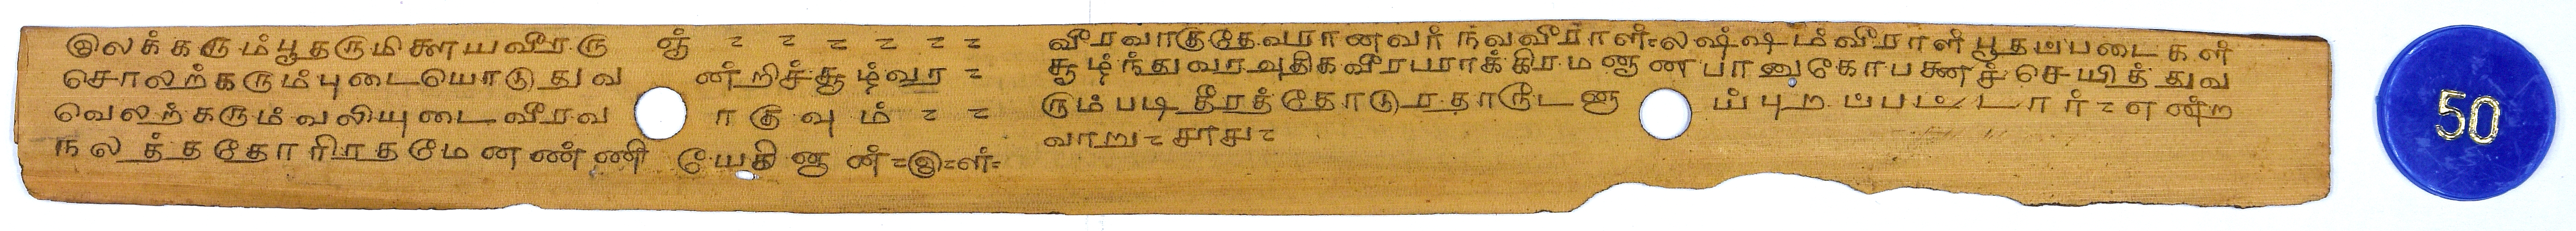 இலக்கரும்பூதருமிளையவீரரு ஞ் = = = = = =
சொலற்கரும்புடையொடுதுவ ன்றிச்சூழ்வர =
வெலற்கரும்வலியுடைவீரவ ாகுவும் = =
நலத்ததோரிரதமேனண்ணி யேகினான்=இ=ள்=
வீரவாகுதேவரானவர் நவவீராள்=லஷ்ஷம்வீராள் பூதப்படைகள்
சூழ்ந்துவரஅதிகவீரபராக்கிரமனான பானுகோபனைச்செயித்துவ
ரும்படிதீரத்தோடுரதாரூடனா ய்புறப்பட்டார்=என்ற
வாறு=
50